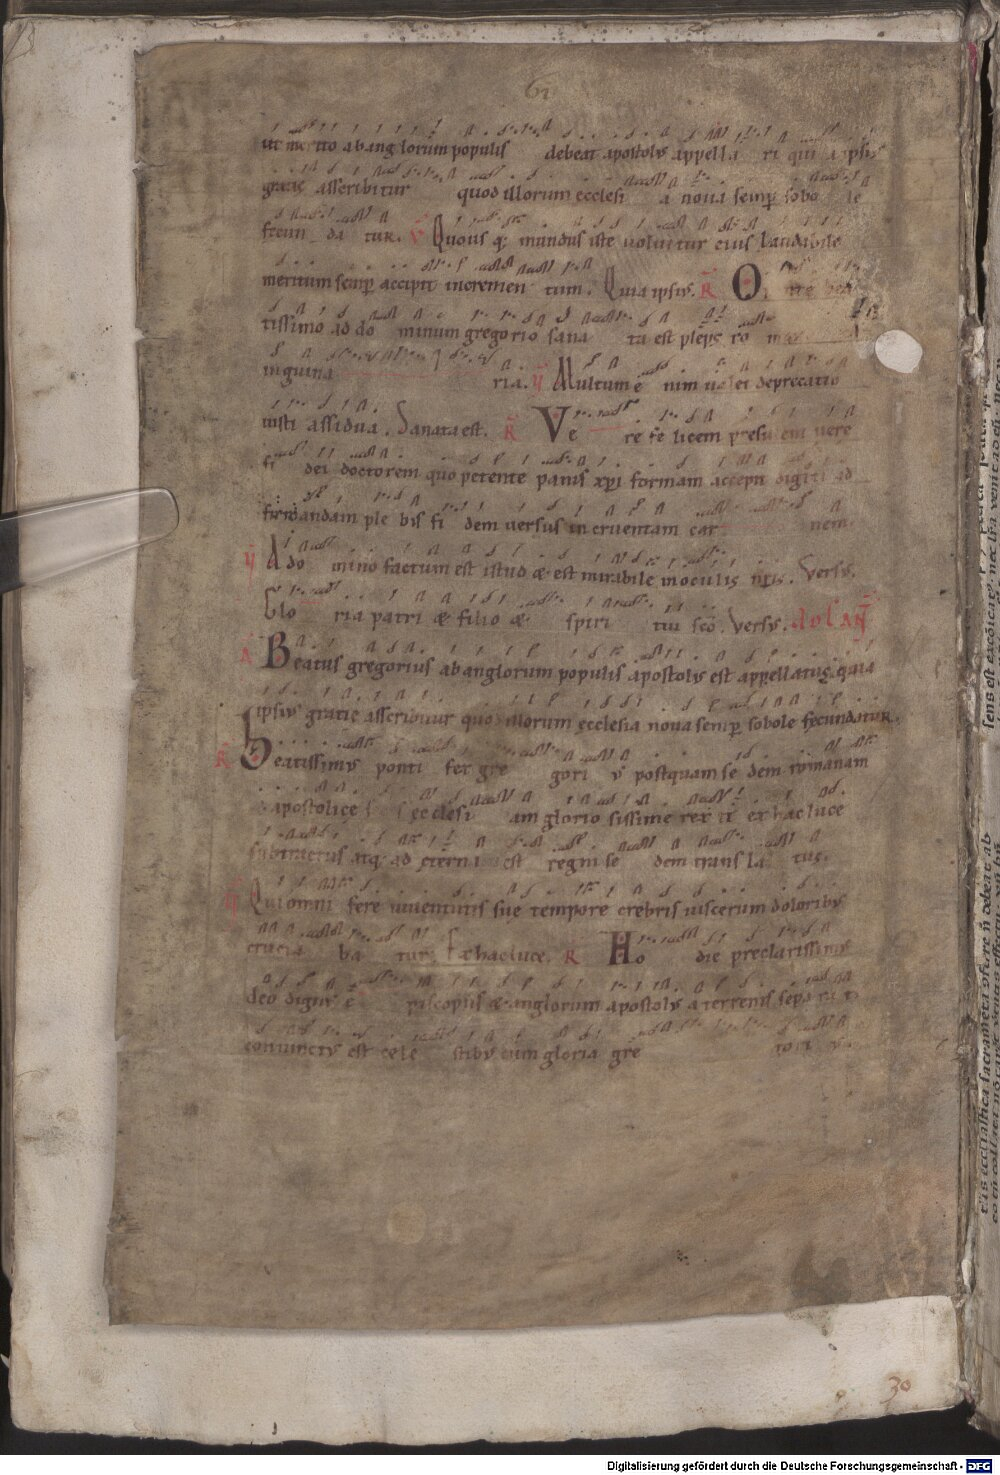 61
ut merito ab anglorum populis debeat apostolus appella ri qui a ipsius
gratie asscribitur quod illorum ecclesi a noua semp sobo le
fecun da tur. V Quous q; mundus iste uoluitur eius laudibile
meritum semp accipit incremen tum. Quia ipsius. R O
tissimo ad do minum gregorio sana ta est plebs ro
inguina ria. V Multum e nim ualet deprecatio
iusti assidua. Sanata est. R Ve re fe licem presulem uere
fi dei doctorem quo petente panis xpi formam accepit digiti ad
firmandam ple bis fi dem uersus in cruentam car nem
V A do mino factum est istud & est mirabile in oculis nris. Versus.
Glo ria patri & filio & spiri tui sco. Versus.
A Beatus gregorius ab anglorum populis apostolus est appellatus. quia
ipsius gratie asscribitur quod illorum ecclesia noua semp sobole fecundatur.
R Beatissimus ponti fex gre gori us postquam se dem romanam
apostolice ecclesi am glorio sissime rexit ex hac luce
subtractus atq; ad eterni est regni se dem trans la tus.
V Qui omni fere iuuentutis sue tempore crebris uiscerum doloribus
crucia ba tur. Ex hac luce. R Ho die preclarissimus
deo dignus e piscopus & anglorum apostolus a terrenis separatus
coniunctus est cele stibus cum gloria gre gori us.
30
Digitalisierung gefördert durch die Deutsche Forschungsgemeinschaft - DFG